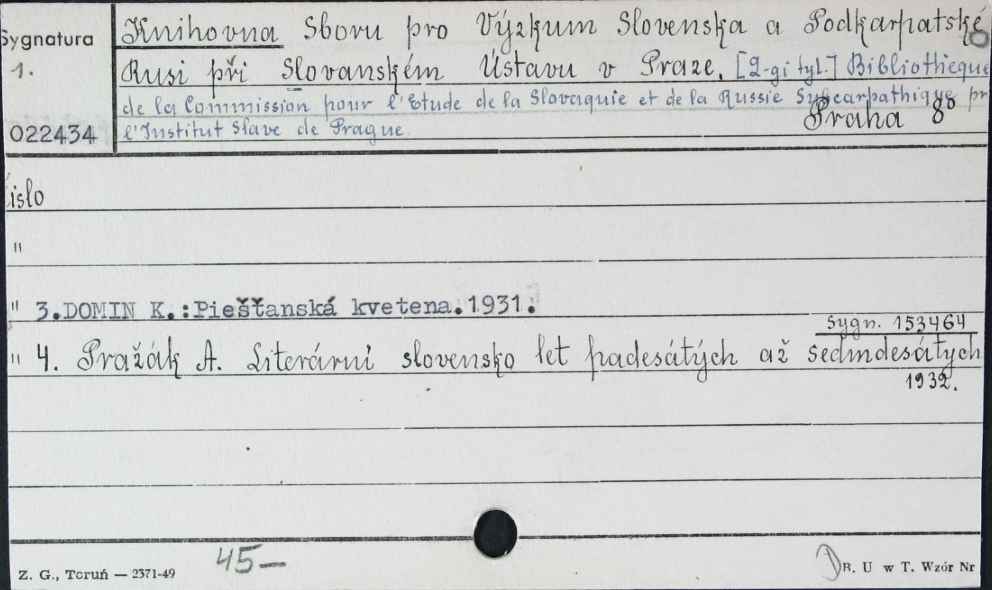 Sygnatura
1.
022434
Knihovna Sboru pro Výzkum Slovenska a Podkarpatské
Rusi při Slovanském Ústavu v Praze. [2-gi tyt.] Bibliothèque
de la Commission pour l'Etude de la Slovaquie et de la Russie Subcarpathique pr
l'Institut Slave de Prague.
Praha 8°
číslo
"
" 3. DOMIN K.: Piešťanská kvetena. 1931.
Sygn. 153464
" 4. Pražák A. Literární slovensko let padesátých až sedmdesátych
1932.
45—
Z. G., Toruń — 2371-49
B. U w T. Wzór Nr